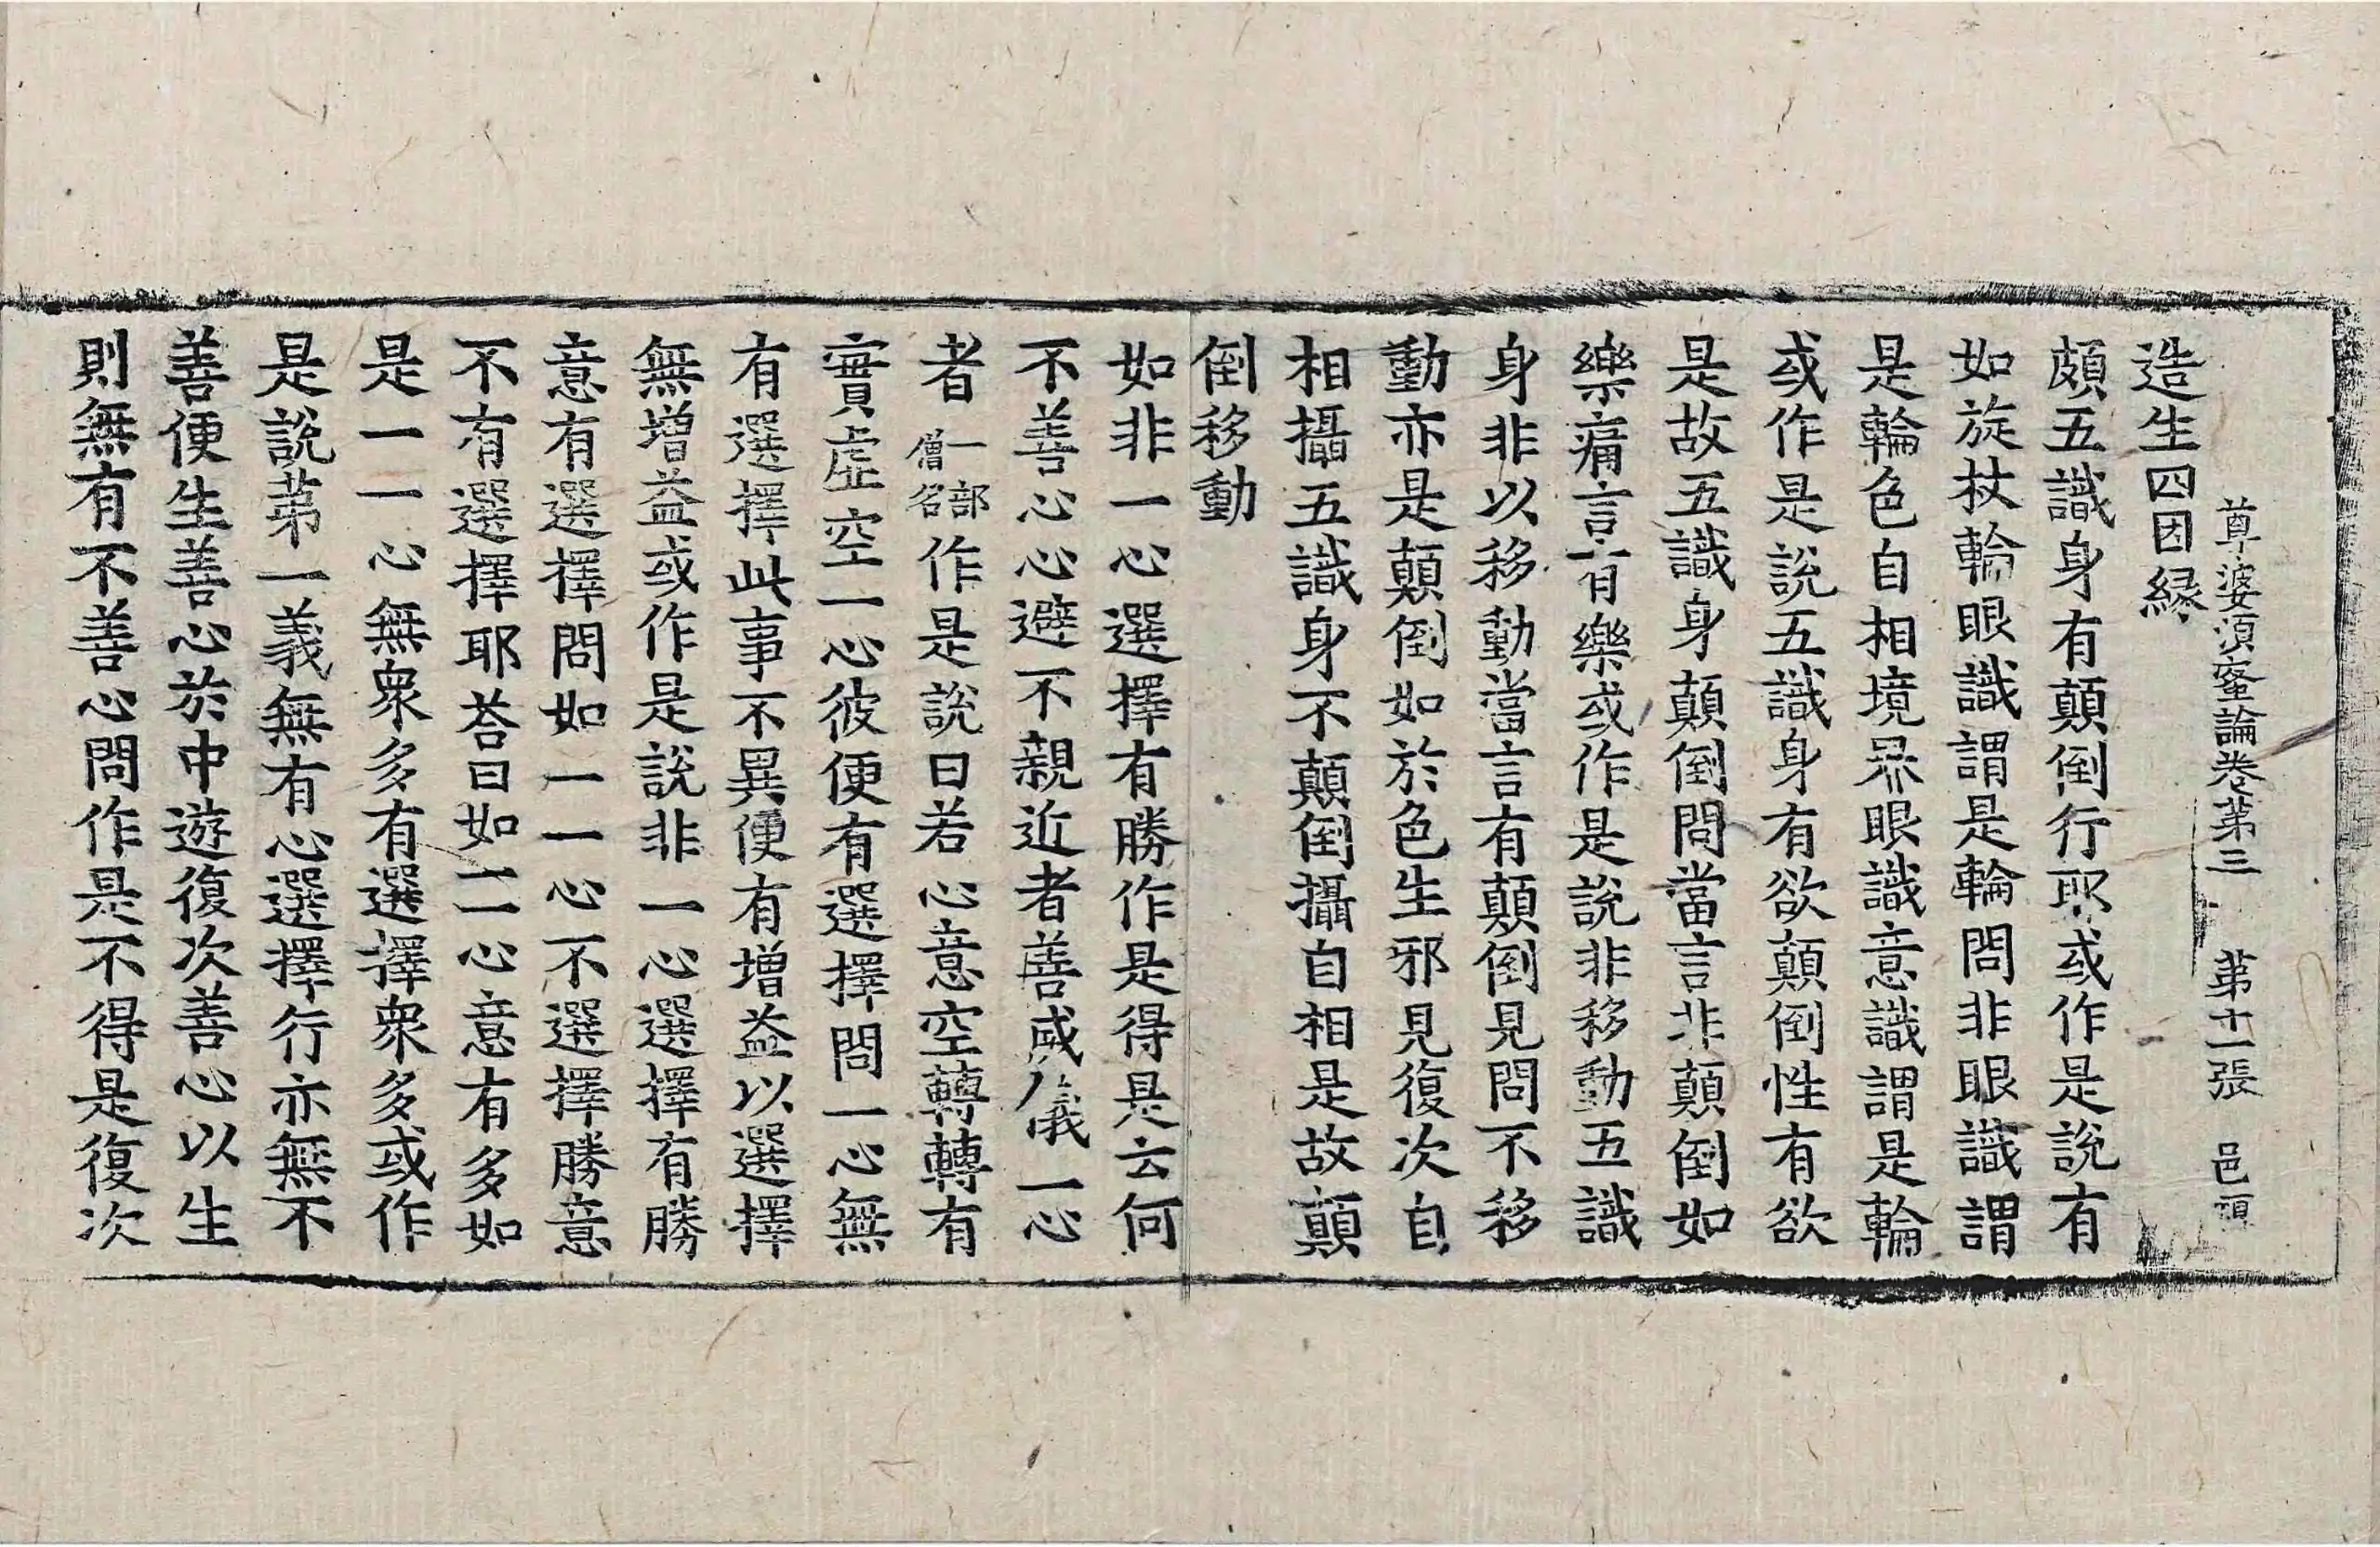 尊婆須蜜論卷第三　第十一張　邑
造生四因縁
頗五識身有顛倒行耶或作是說有
如旋杖輪眼識謂是輪問非眼識謂
是輪色自相境界眼識意識謂是輪
或作是說五識身有欲顛倒性有欲
是故五識身顛倒問當言非顛倒如
樂痛言有樂或作是說非移動五識
身非以移動當言有顛倒見問不移
動亦是顛倒如於色生邪見復次自
相攝五識身不顛倒攝自相是故顛
倒移動
如非一心選擇有勝作是得是云何
不善心心避不親近者善威儀一心
者一部僧名作是說曰若心意空轉轉有
實虛空一心彼便有選擇問一心無
有選擇此事不異便有增益以選擇
無增益或作是說非一心選擇有勝
意有選擇問如一一心不選擇勝意
不有選擇耶荅曰如一一心意有多如
是一一心無衆多有選擇衆多或作
是說第一義無有心選擇行亦無不
善便生善心於中遊復次善心以生
則無有不善心問作是不得是復次